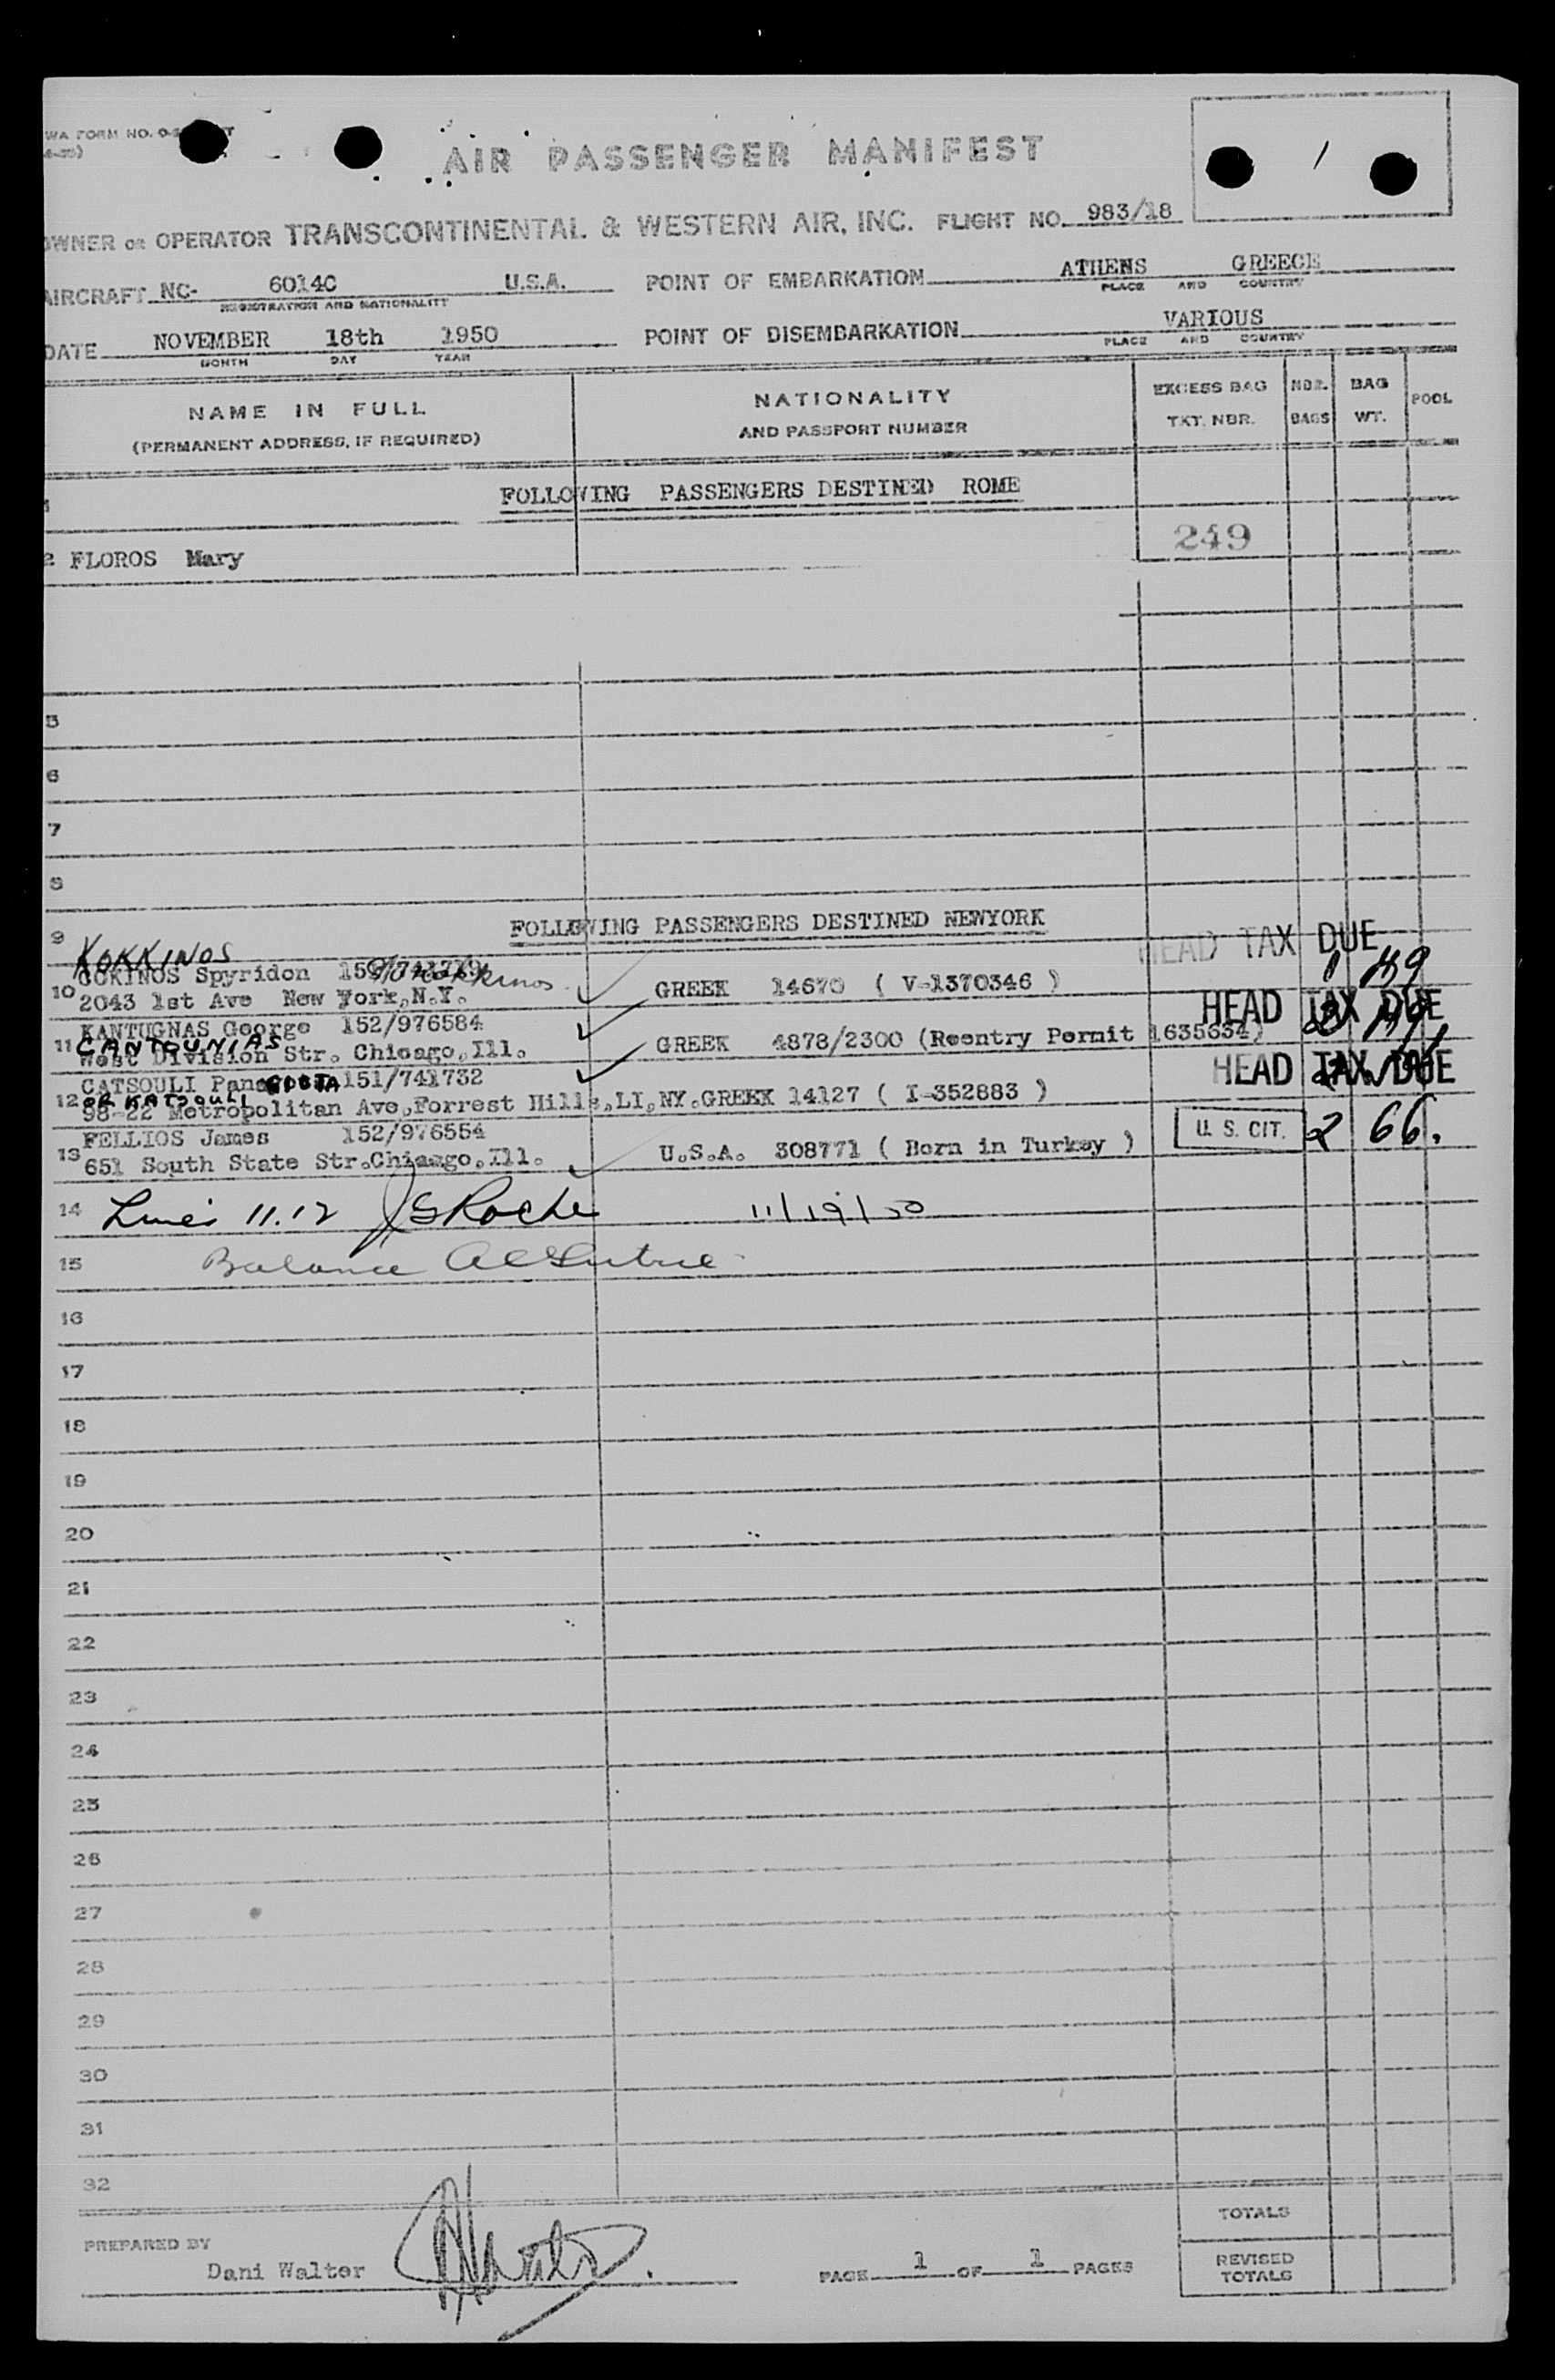 WA FORM NO.
AIR PASSENGER MANIFEST
1
OWNER OR OPERATOR TRANSCONTINENTAL & WESTERN AIR, INC. FLIGHT NO. 983/18
AIRCRAFT NC- 6014C U.S.A. POINT OF EMBARKATION ATHENS GREECE
REGISTRATION AND NATIONALITY PLACE AND COUNTRY
DATE NOVEMBER 18th 1950 POINT OF DISEMBARKATION VARIOUS
MONTH DAY YEAR PLACE AND COUNTRY
NAME IN FULL NATIONALITY EXCESS BAG NBR. BAG POOL
(PERMANENT ADDRESS, IF REQUIRED) AND PASSPORT NUMBER TKT. NBR. BAGS WT.
FOLLOWING PASSENGERS DESTINED ROME
2 FLOROS Mary 249
5
6
7
8
9 FOLLOWING PASSENGERS DESTINED NEWYORK
KOKKINOS HEAD TAX DUE
COKINOS Spyridon
10 2043 1st Ave New York,N.Y. GREEK 14670 ( V-1370346 )
KANTUGNAS George 152/976584 HEAD TAX DUE
11 CANTOUNIAS GREEK 4878/2300 (Reentry Permit 1635634)
West Division Str. Chicago,Ill.
CATSOULI 151/741732 HEAD TAX DUE
OR KATSOULI
12 98-22 Metropolitan Ave,Forrest Hills,LI,NY.GREEK 14127 ( I-352883 )
FELLIOS James 152/976554 U. S. CIT. 2 66.
13 651 South State Str.Chicago,Ill. U.S.A. 308771 ( Born in Turkey )
14 Lines 11.12 JGRoche 11/19/50
15 Balance
16
17
18
19
20
21
22
23
24
25
26
27
28
29
30
31
32
TOTALS
PREPARED BY
Dani Walter PAGE 1 OF 1 PAGES
REVISED
TOTALS